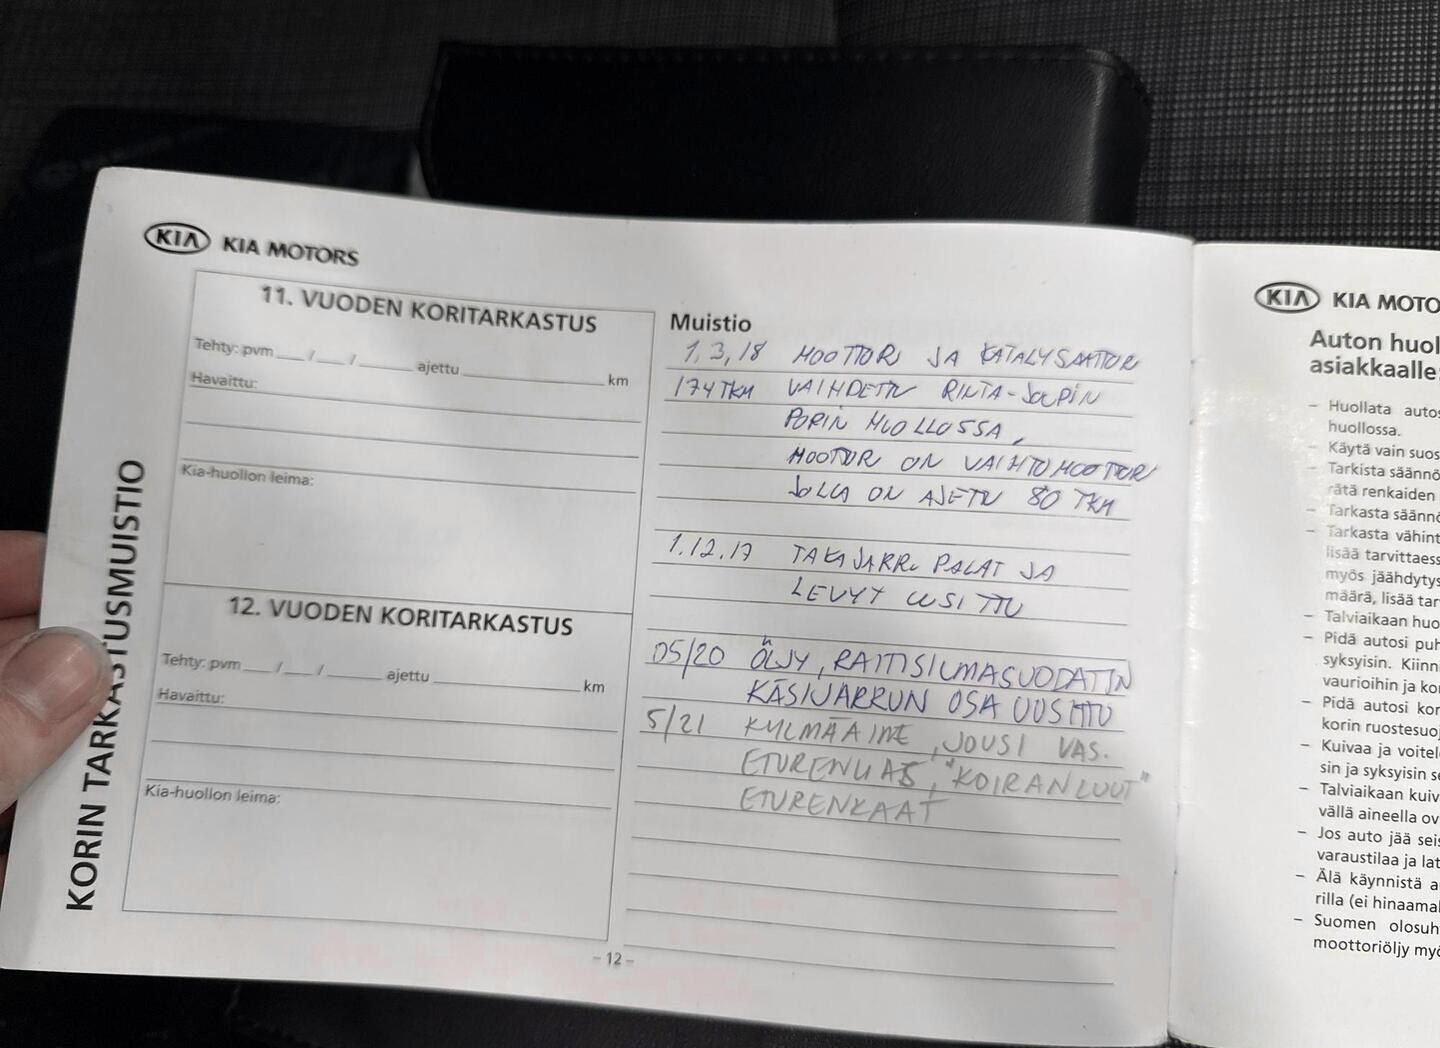 KIA KIA MOTORS
11. VUODEN KORITARKASTUS
Tehty: pvm ___/___/_____ ajettu ____________ km
Havaittu:
Kia-huollon leima:
12. VUODEN KORITARKASTUS
Tehty: pvm ___/___/_____ ajettu ____________ km
Havaittu:
Kia-huollon leima:
KORIN TARKASTUSMUISTIO
Muistio
1.3.18 MOOTTORI JA KATALYSAATTORI
174 TKM VAIHDETTU RINTA-JOUPIN
PORIN HUOLLOSSA,
MOOTTORI ON VAIHTOMOOTTORI
JOLLA ON AJETTU 80 TKM
1.12.17 TAKAJARRU PALAT JA
LEVYT UUSITTU
05/20 ÖLJY, RAITISILMASUODATIN
KÄSIJARRUN OSA UUSITTU
5/21 KYLMÄAINE, JOUSI VAS.
ETURENGAS, "KOIRANLUUT"
ETURENKAAT
- 12 -
KIA KIA MOTO
Auton huol
asiakkaalle
– Huollata autos
huollossa.
– Käytä vain suos
– Tarkista säännö
rätä renkaiden
– Tarkasta säännö
– Tarkasta vähint
lisää tarvittaess
myös jäähdytys
määrä, lisää tar
– Talviaikaan huo
– Pidä autosi puh
syksyisin. Kiinn
vaurioihin ja ko
– Pidä autosi kor
korin ruostesuoj
– Kuivaa ja voitel
sin ja syksyisin s
– Talviaikaan kuiv
vällä aineella ov
– Jos auto jää seis
varaustilaa ja lat
– Älä käynnistä a
rilla (ei hinaamal
– Suomen olosuh
moottoriöljy myö